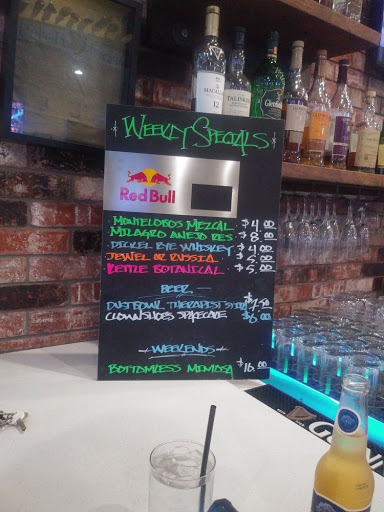 WEEKLY SPECIALS
Red Bull
• MONTELOBOS MEZCAL • $4.00
• MILAGRO ANEJO RES • $8.00
• DICKEL RYE WHISKEY • $4.00
• JEWEL OF RUSSIA • $5.00
• KETTLE BOTANICAL • $5.00
BEER
DUSTBOWL THERAPIST $7.50
CLOWNSHOES SPACECAKE $6.00
WEEKENDS
BOTTOMLESS MIMOSA $16.00
MACALLAN
12
TALISKER